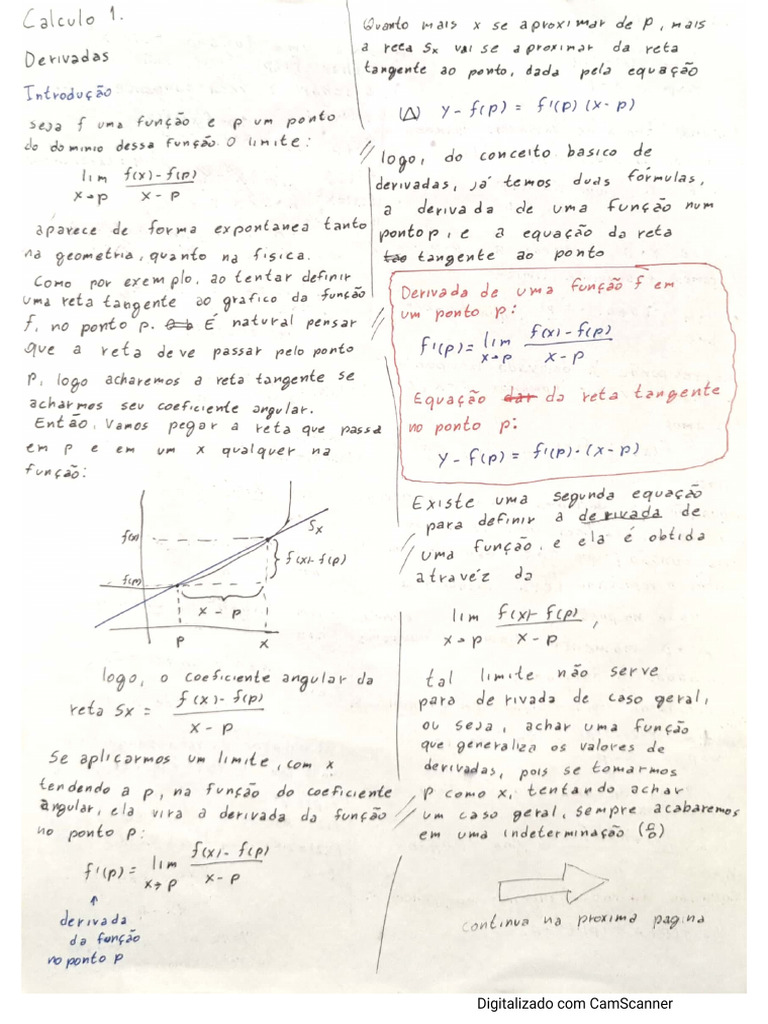 Calculo 1.
Derivadas
Introdução
seja f uma função e p um ponto
do dominio dessa função. O limite:
lim f(x)-f(p)
x→p x-p
aparece de forma expontanea tanto
na geometria, quanto na fisica.
Como por exemplo, ao tentar definir
uma reta tangente ao grafico da função
f, no ponto p. É natural pensar
que a reta deve passar pelo ponto
p, logo acharemos a reta tangente se
acharmos seu coeficiente angular.
Então, Vamos pegar a reta que passa
em p e em um x qualquer na
função:
f(x)
Sx
f(x)-f(p)
f(p)
x - p
p x
logo, o coeficiente angular da
reta Sx = f(x)-f(p)
x-p
Se aplicarmos um limite, com x
tendendo a p, na função do coeficiente
angular, ela vira a derivada da função
no ponto p:
f'(p) = lim f(x)-f(p)
x→p x-p
↑
derivada
da função
no ponto p
Quanto mais x se aproximar de p, mais
a reta Sx vai se aproximar da reta
tangente ao ponto, dada pela equação
(Δ) y-f(p) = f'(p) (x-p)
logo, do conceito basico de
derivadas, já temos duas fórmulas,
a derivada de uma função num
ponto p, e a equação da reta
tao tangente ao ponto
Derivada de uma função f em
um ponto p:
f'(p) = lim f(x)-f(p)
x→p x-p
Equação dar da reta tangente
no ponto p:
y-f(p) = f'(p)·(x-p)
Existe uma segunda equação
para definir a derivada de
uma função, e ela é obtida
atravéz da
lim f(x)-f(p),
x→p x-p
tal limite não serve
para derivada de caso geral,
ou seja, achar uma função
que generaliza os valores de
derivadas, pois se tomarmos
p como x, tentando achar
um caso geral, sempre acabaremos
em uma indeterminação (0/0)
continua na proxima pagina
Digitalizado com CamScanner